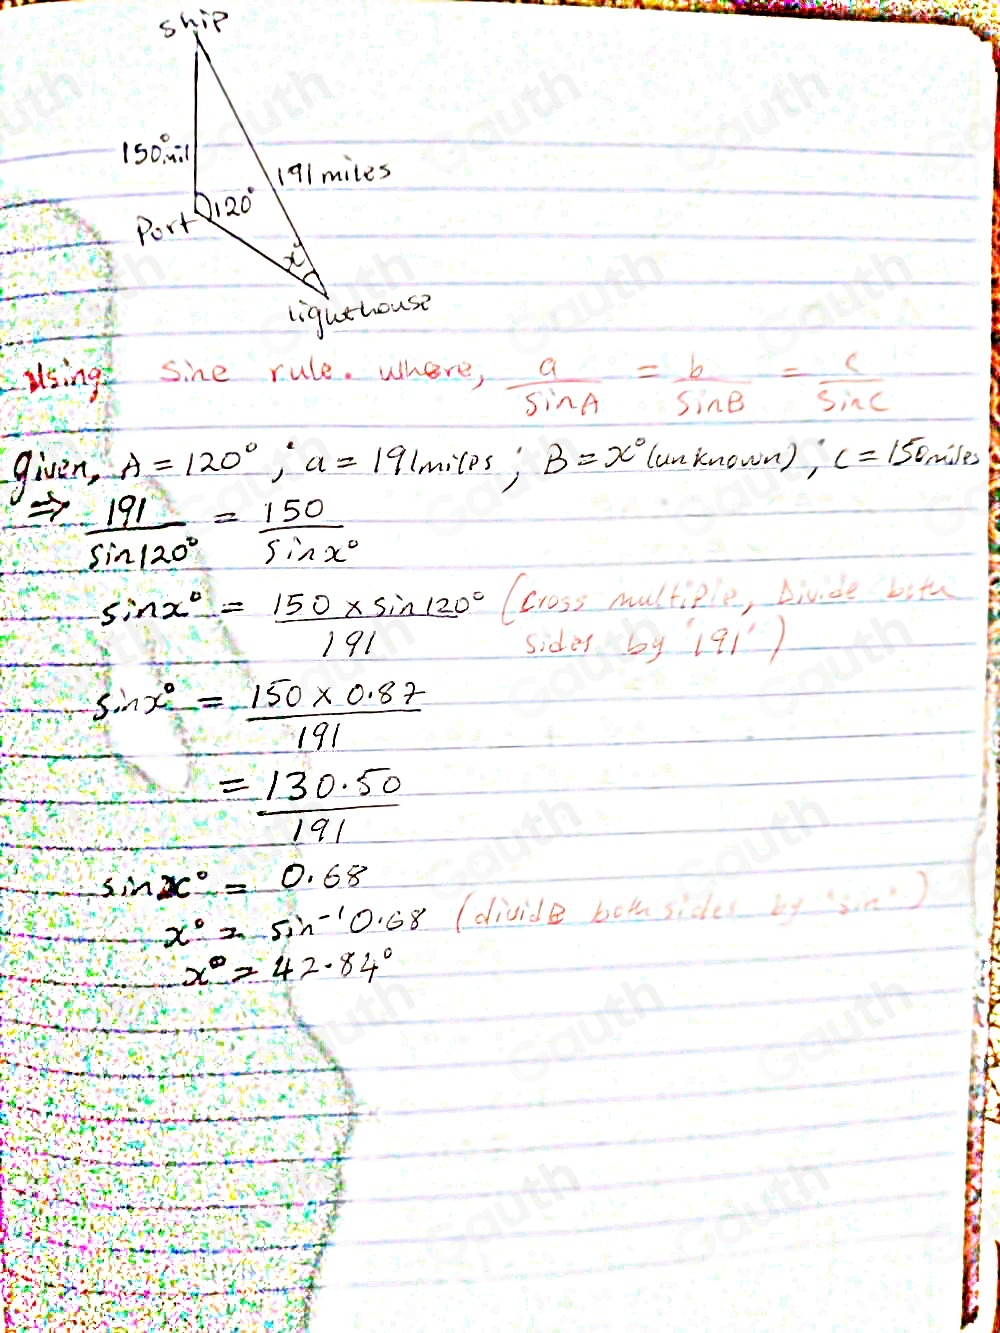 ship
150 mil
191 miles
120°
Port
x°
lighthouse
Using Sine rule. where, a/SinA = b/SinB = c/SinC
given, A = 120° ; a = 191miles ; B = x° (unknown) ; c = 150miles
⇒ 191/Sin120° = 150/Sinx°
sinx° = 150 x sin120°/191 (Cross multiple, Divide both
sides by '191')
sinx° = 150 x 0.87/191
= 130.50/191
sinx° = 0.68
x° = sin⁻¹ 0.68 (divide both sides by 'sin')
x° = 42.84°